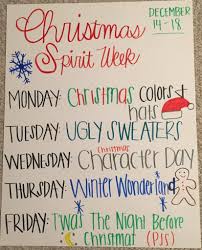 Christmas
Spirit Week
DECEMBER
14-18
MONDAY: Christmas colors +
hats
TUESDAY: UGLY SWEATERS
WEDNESDAY: Christmas Character Day
THURSDAY: Winter Wonderland
FRIDAY: T'was The Night Before
Christmas (PJs)